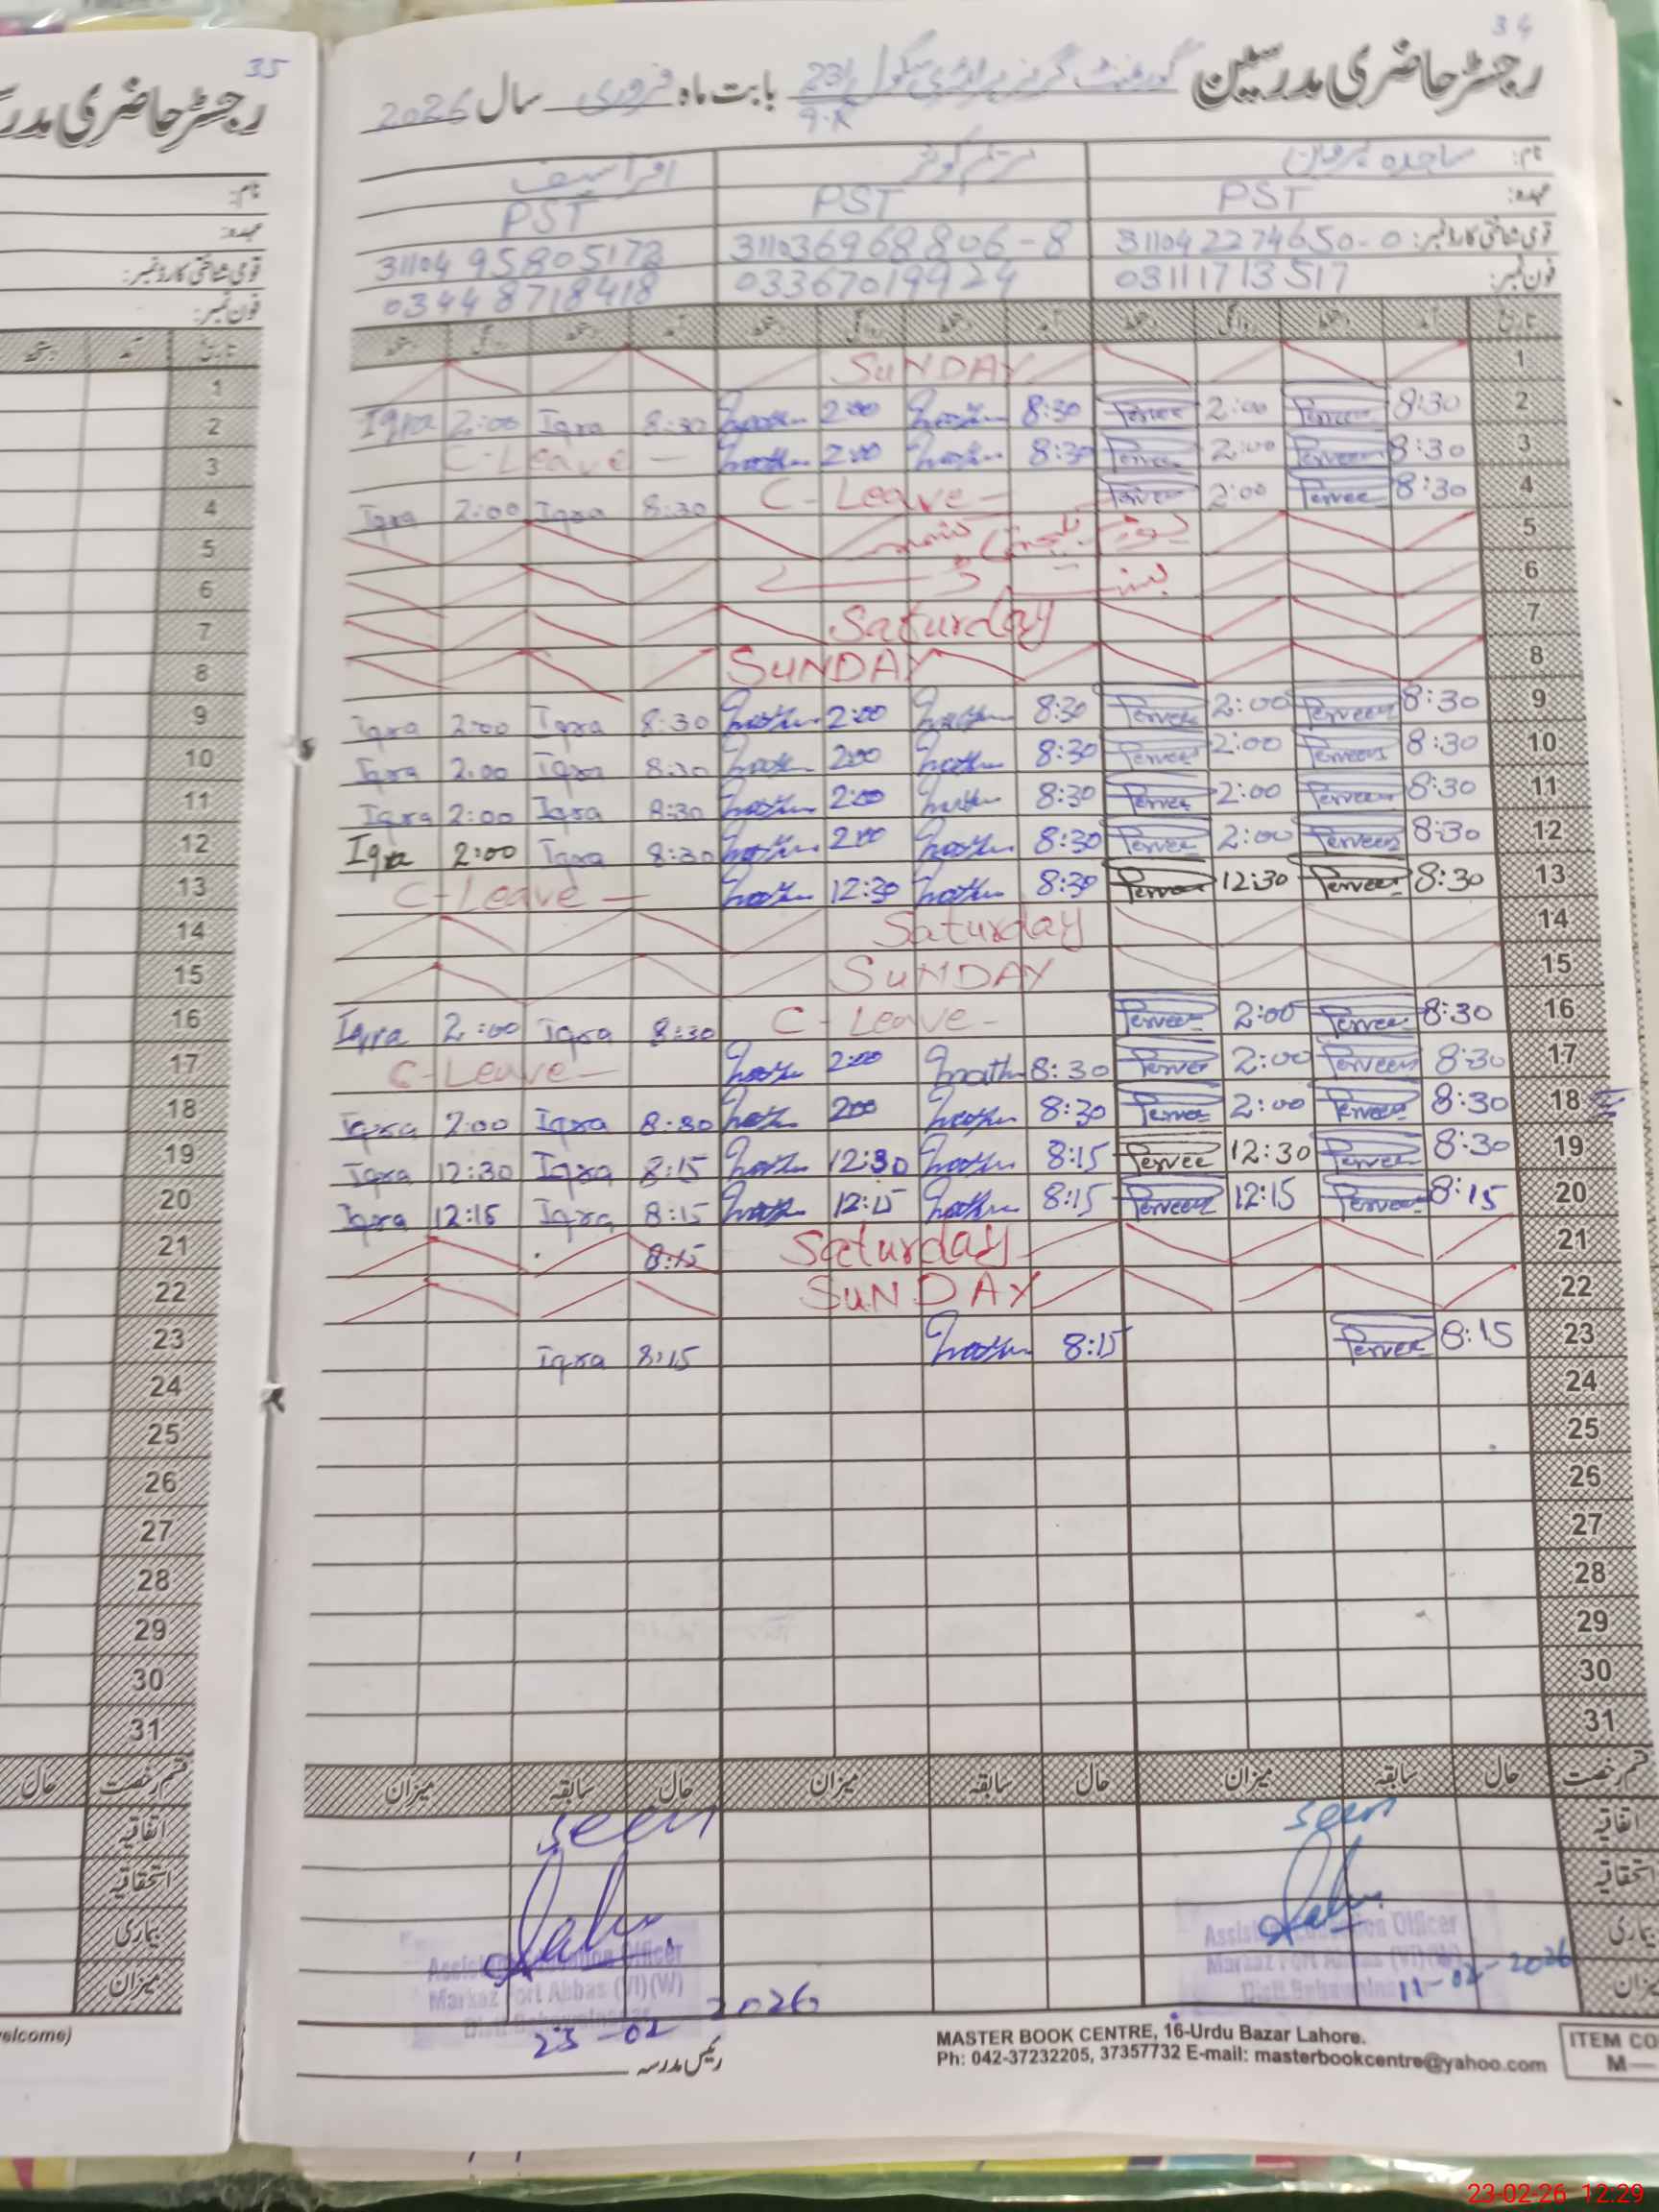 34
رجسٹر حاضری مدرسین گورنمنٹ گرلز پرائمری سکول 23/9-R بابت ماہ فروری سال 2026
نام: ساجدہ پروین
عہدہ: PST PST PST
قومی شناختی کارڈ نمبر: 31104 2274650-0 3110369 68806-8 31104 95805172
فون نمبر: 03111713517 03367019924 03448718418
تاریخ آمد دستخط روانگی دستخط آمد دستخط روانگی دستخط آمد دستخط روانگی دستخط
1 SUNDAY
Iqra 2:00 Iqra 8:30 2:00 8:30 Pervee 2:00 Perveen 8:30 2
C-Leave — 2:00 8:30 Pervee 2:00 Perveen 8:30 3
Iqra 2:00 Iqra 8:30 C-Leave- Pervee 2:00 Pervee 8:30 4
5
6
Saturday 7
SUNDAY 8
Iqra 2:00 Iqra 8:30 2:00 8:30 Pervee 2:00 Perveen 8:30 9
Iqra 2:00 Iqra 8:30 2:00 8:30 Pervee 2:00 Perveen 8:30 10
Iqra 2:00 Iqra 8:30 2:00 8:30 Pervee 2:00 Perveen 8:30 11
Iqra 2:00 Iqra 8:30 2:00 8:30 Pervee 2:00 Perveen 8:30 12
C-Leave — 12:30 8:30 Pervee 12:30 Perveen 8:30 13
Saturday 14
SUNDAY 15
Iqra 2:00 Iqra 8:30 C-Leave- Perveen 2:00 Pervee 8:30 16
C-Leave- 2:00 8:30 Pervee 2:00 Perveen 8:30 17
Iqra 2:00 Iqra 8:30 2:00 8:30 Pervee 2:00 Perveen 8:30 18
Iqra 12:30 Iqra 8:15 12:30 8:15 Pervee 12:30 Pervee 8:30 19
Iqra 12:15 Iqra 8:15 12:15 8:15 Perveen 12:15 Pervee 8:15 20
8:15 Saturday 21
SUNDAY 22
Iqra 8:15 8:15 Pervee 8:15 23
24
25
26
27
28
29
30
31
قسم رخصت حال سابقہ میزان حال سابقہ میزان حال سابقہ میزان
اتفاقیہ
استحقاقیہ
بیماری
میزان
seen
Assistant Education Officer
Markaz Fort Abbas (VI)(W)
Distt Bahawalnagar
11-02-2026
seen
Assistant Education Officer
Markaz Fort Abbas (VI)(W)
Distt Bahawalnagar
23-02 2026
رئیس مدرسہ
MASTER BOOK CENTRE, 16-Urdu Bazar Lahore.
Ph: 042-37232205, 37357732 E-mail: masterbookcentre@yahoo.com
ITEM CO
M—
35
رجسٹر حاضری مدر
نام:
عہدہ:
قومی شناختی کارڈ نمبر:
فون نمبر:
تاریخ آمد دستخط
1
2
3
4
5
6
7
8
9
10
11
12
13
14
15
16
17
18
19
20
21
22
23
24
25
26
27
28
29
30
31
قسم رخصت حال
اتفاقیہ
استحقاقیہ
بیماری
میزان
elcome)
23-02-26 12:29